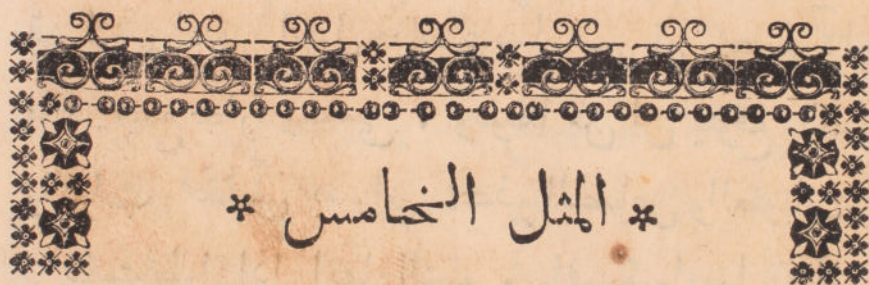 * المثل الخامس *